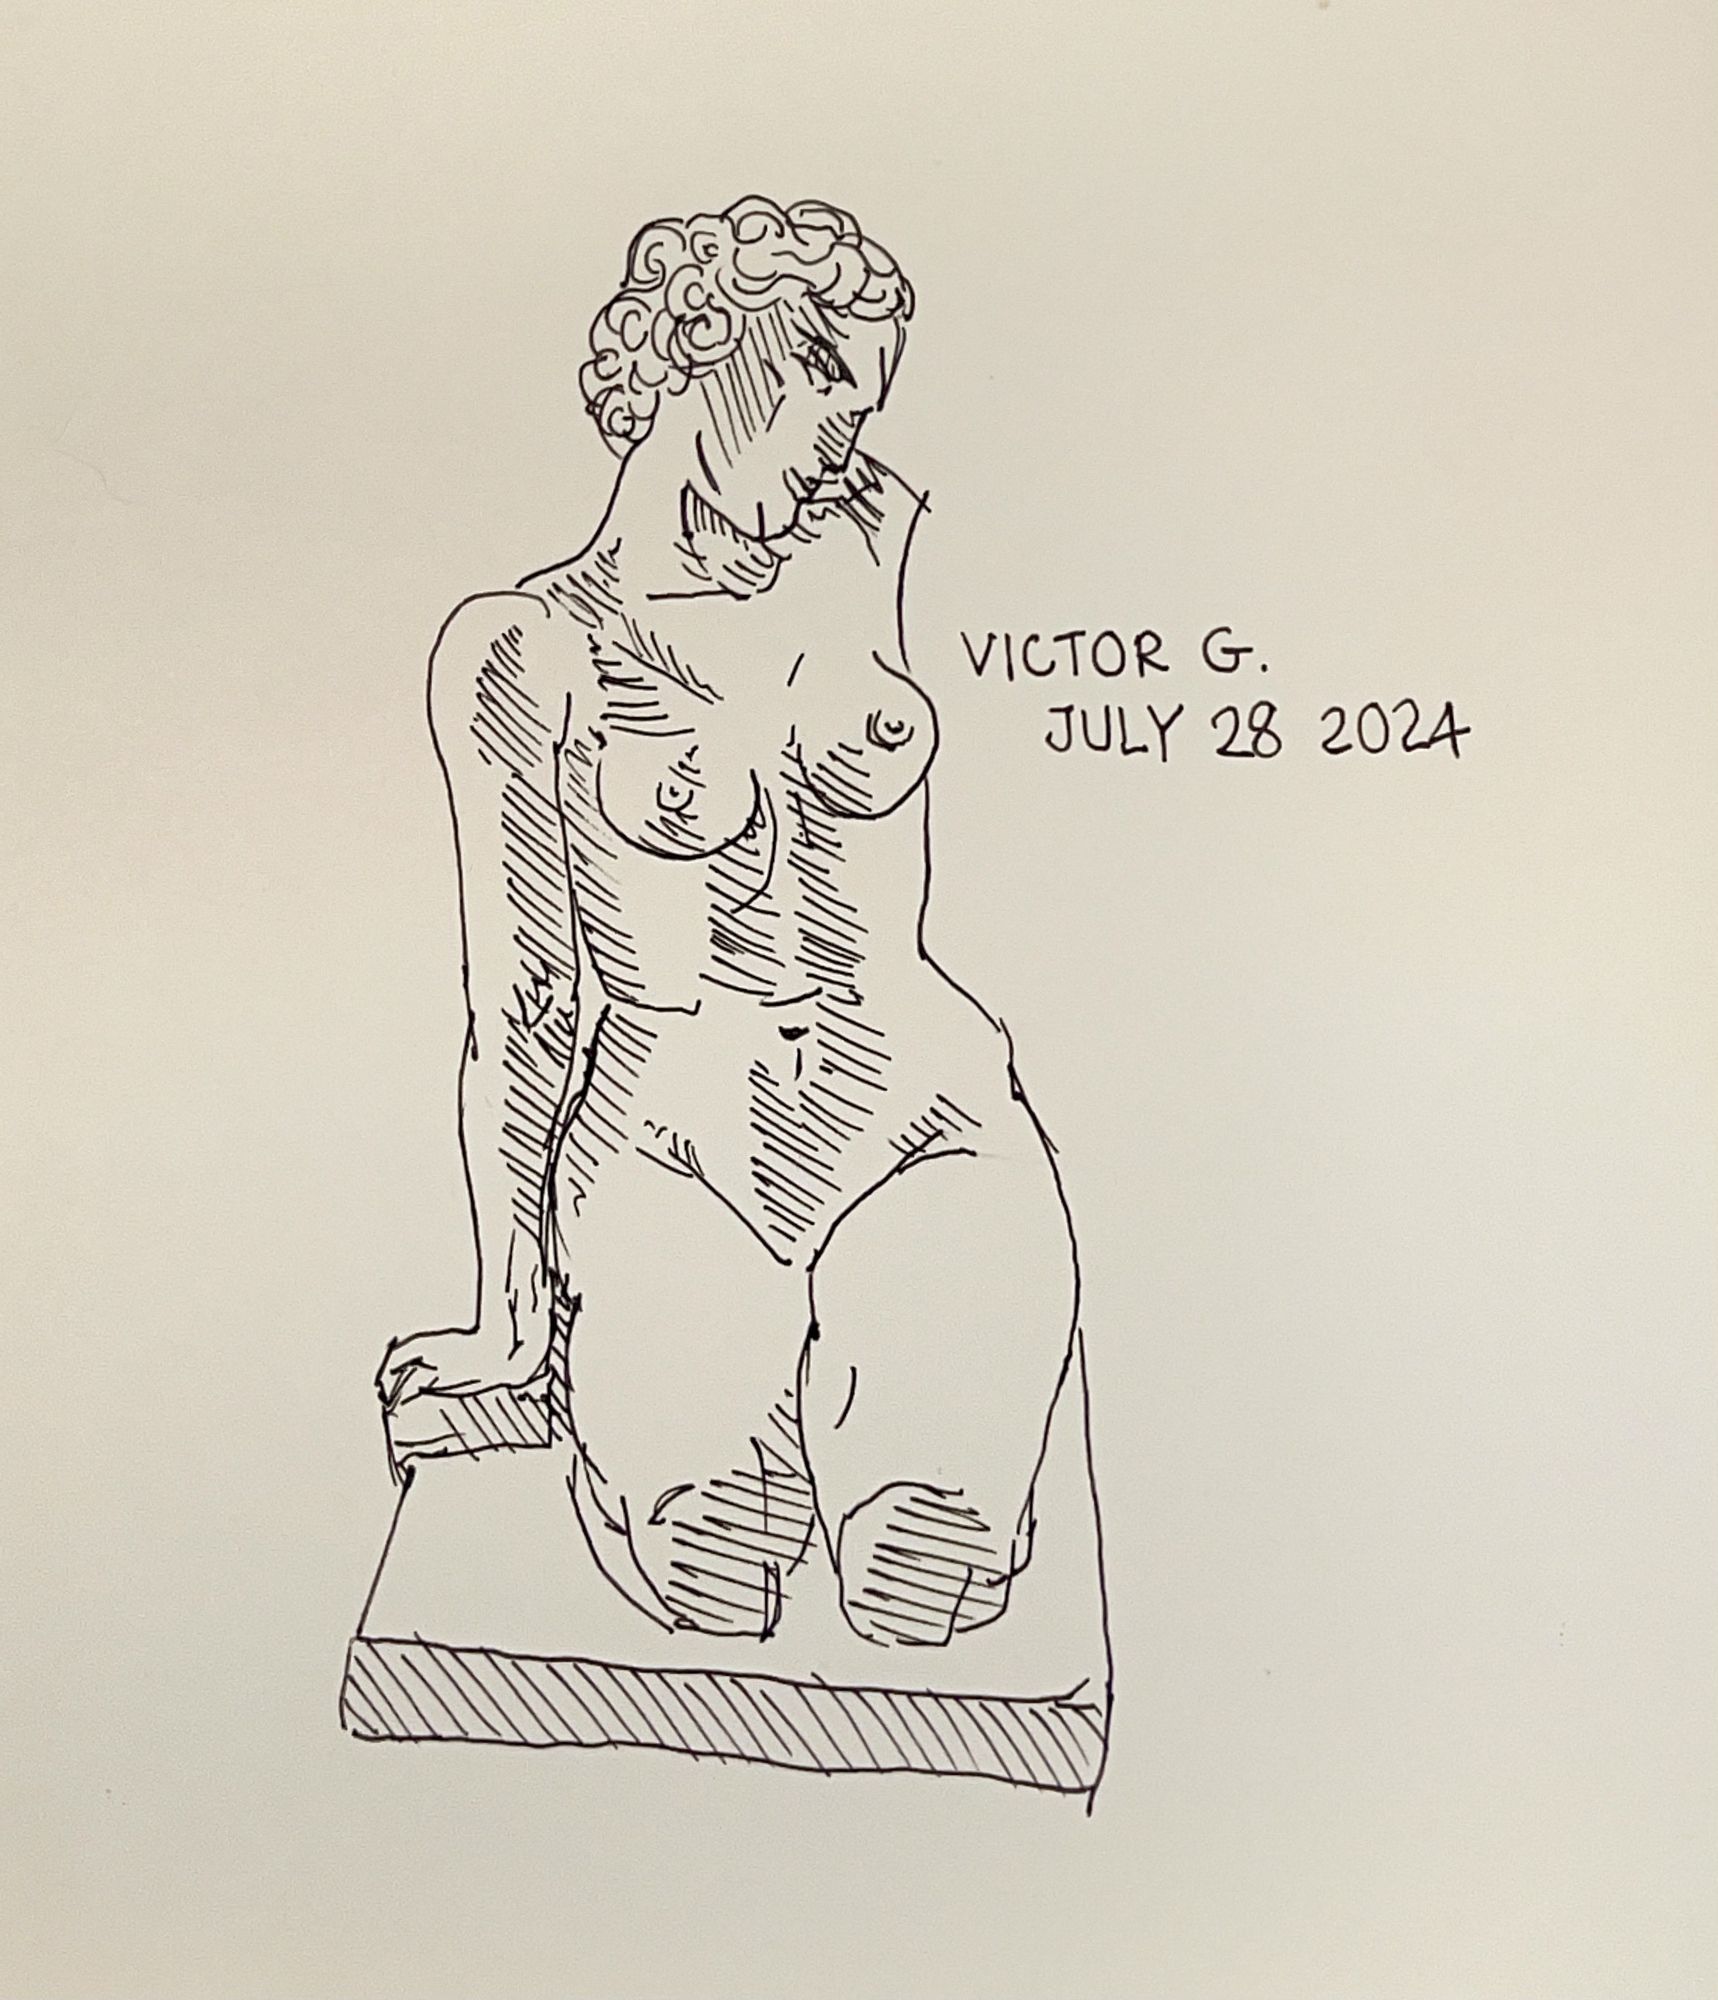 VICTOR G.
JULY 28 2024